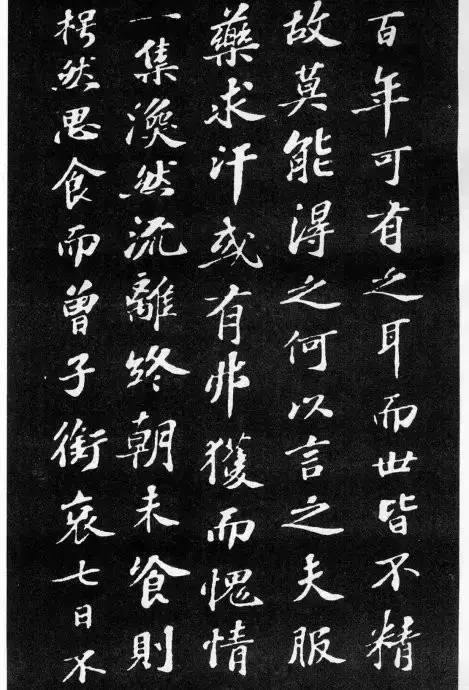 百年可有之耳而世皆不精
故莫能得之何以言之夫服
藥求汗或有弗獲而愧情
一集渙然流離終朝未餐則
枵然思食而曾子銜哀七日不